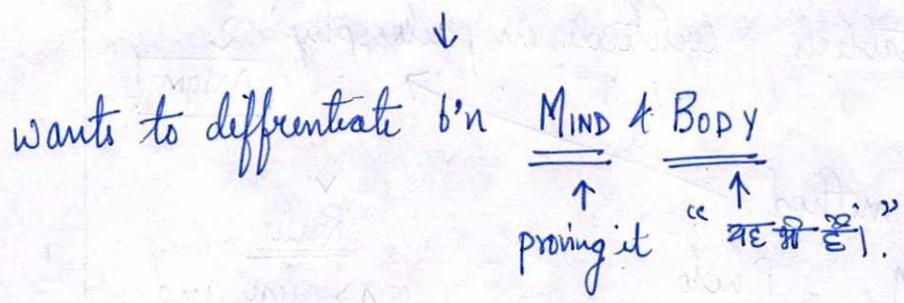 ↓
wants to diffrentiate b'n MIND & BODY
↑ ↑
proving it "यह भी है।".